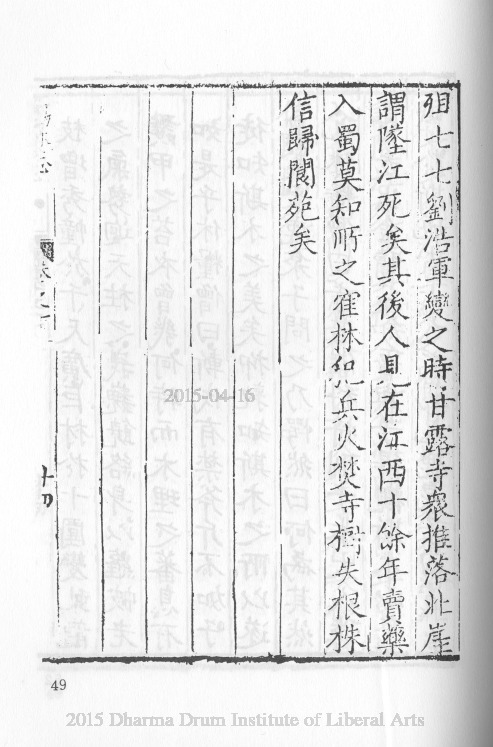 殂七七劉浩軍變之時甘露寺衆推落北崖
謂墜江死矣其後人見在江西十餘年賣藥
入蜀莫知所之隺林犯兵火焚寺樹失根株
信歸閬苑矣
2015-04-16
49
2015 Dharma Drum Institute of Liberal Arts